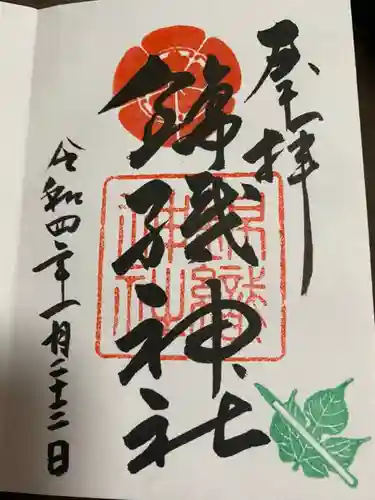 奉拝
錦織神社
錦織
神社
令和四年一月二十二日